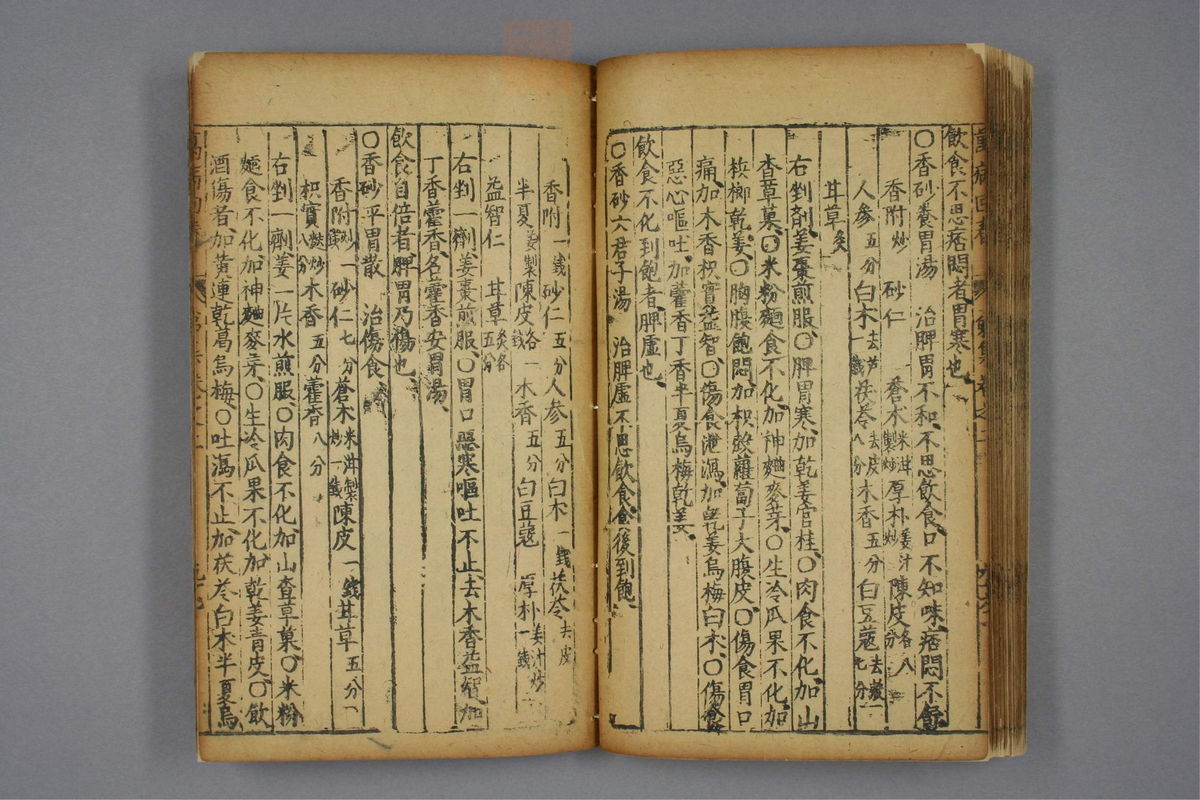 飲食不思痞悶者胃寒也
〇香砂養胃湯 治脾胃不和不思飲食口不知味痞悶不舒
香附炒 砂仁 蒼朮米泔製炒厚朴姜汁炒陳皮各八分
人參五分白朮去芦一錢茯苓去皮八分木香五分白豆蔻去殼七分
甘草炙
右剉劑姜棗煎服〇脾胃寒加乾姜官桂〇肉食不化加山
查草菓〇米粉麵食不化加神麯麥芽〇生冷瓜果不化加
梹榔乾姜〇胸腹飽悶加枳殼蘿蔔子大腹皮〇傷食胃口
痛加木香枳實益智〇傷食泄瀉加乾姜烏梅白朮〇傷食
惡心嘔吐加藿香丁香半夏烏梅乾姜
飲食不化到飽者脾虛也
〇香砂六君子湯 治脾虛不思飲食食後到飽
香附一錢砂仁五分人參五分白朮一錢茯苓去皮
半夏姜製陳皮各一錢木香五分白豆蔻 厚朴姜汁炒一錢
益智仁 甘草炙各五分
右剉一劑姜棗煎服〇胃口惡寒嘔吐不止去木香益智加
丁香藿香名藿香安胃湯
飲食自倍者脾胃乃傷也
〇香砂平胃散 治傷食
香附炒一錢砂仁七分蒼朮米泔製炒一錢陳皮一錢甘草五分
枳實麩炒八分木香五分藿香八分
右剉一劑姜一片水煎服〇肉食不化加山查草菓〇米粉
麵食不化加神麯麥芽〇生冷瓜果不化加乾姜青皮〇飲
酒傷者加黃連乾葛烏梅〇吐瀉不止加茯苓白朮半夏烏